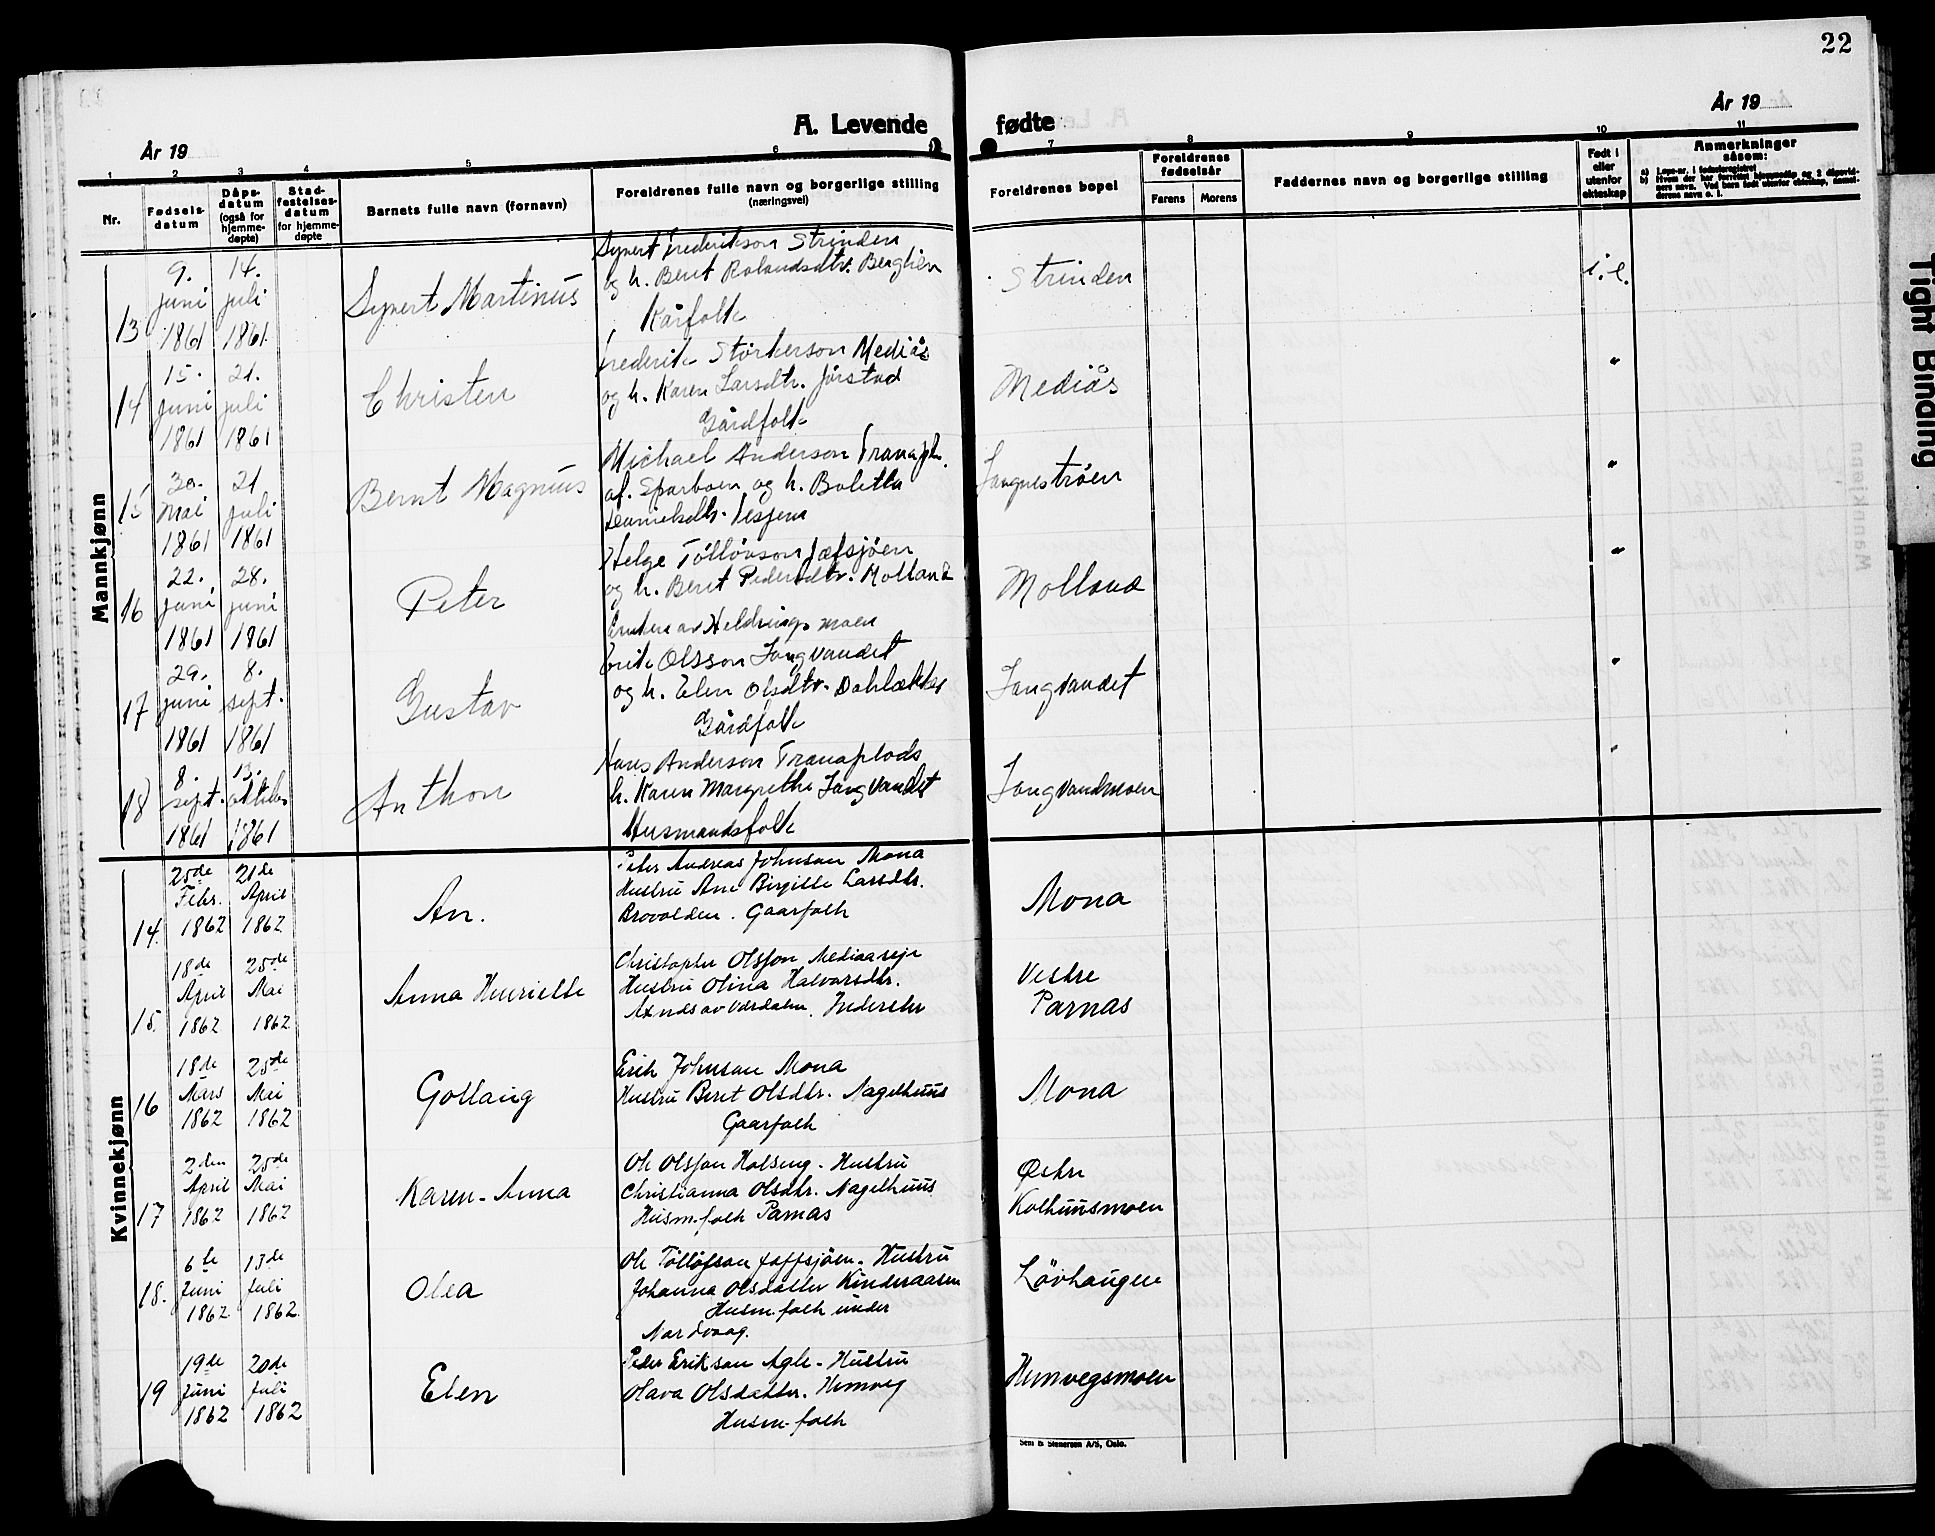 22
År 19
År 19
A. Levende fødte
1 2 3 4 5 6 7 8 9 10 11
Nr.
Fødsels-
datum
Dåps-
datum
(også for
hjemme-
døpte)
Stad-
festelses-
datum
for hjemme-
døpte
Barnets fulle navn (fornavn)
Foreldrenes fulle navn og borgerlige stilling
(næringsvei)
Foreldrenes bopel
Foreldrenes
fødselsår
Farens Morens
Faddernes navn og borgerlige stilling
Født i
eller
utenfor
ekteskap
Anmerkninger
såsom:
Mannkjønn
13
9.
juni
1861
14.
juli
1861
Syvert Martinus
Syvert Frederikson Strinden
og h. Beret Rolandsdtr. Berglien
Kårfolk
Strinden
i.e.
14
15.
juni
1861
21.
juli
1861
Christen
Frederik Storkerson Mediås
og h. Karen Larsdtr. Jørstad
Gårdfolk
Mediås
"
15
30.
Mai
1861
21
juli
1861
Bernt Magnus
Michael Anderson
af. Sparboen og h. Boletta
Danielsdtr.
"
16
22.
juni
1861
28.
juni
1861
Peter
Helge Tølløvson
og h. Beret Pedersdtr. Molland
av Heldrings moen
Molland
"
17
29.
juni
1861
8.
sept.
1861
Gustav
Erik Olsson Langvandet
og h. Elen Olsdtr.
Gårdfolk
Langvandet
"
18
8.
sept.
1861
13.
oktober
1861
Anthon
Hans Anderson
h. Karen Margrethe Langvandet
Husmandsfolk
Langvandmoen
"
Kvinnekjønn
14.
25de
Febr.
1862
21de
April
1862
An.
Peter Andreas Johnsan Mona
Hustru Ane Birgitte Larsdtr.
Brovolden. Gaarfolk
Mona
15.
18de
April
1862
25de
Mai
1862
Anna Henriette
Christopher Olsson
Hustru Olina Halvarsdtr.
av Værdalen. Inderster
Vestre
Parnas
16
18de
Mars
1862
25de
Mai
1862
Gollaug
Erik Johnsan Mona
Hustru Beret Olsdtr. Nagelhuus
Gaarfolk
Mona
17
2den
April
1862
25de
Mai
1862
Karen-Anna
Ole Olsson Holseng. Hustru
Christianna Olsdtr. Nagelhuus
Husm.folk Parnas
Østre
Kolhuusmoen
18.
6te
Juni
1862
13de
Juli
1862
Olea
Ole Tølløfson. Hustru
Johanna Olsdatter Kinderaasen
Husm.folk under
Nordvaag.
Løvhaugen
19
19de
Juni
1862
20de
Juli
1862
Elen
Peder Erikson Agle. Hustru
Olava Olsdatter. Humveg
Husm.folk
Humvegsmoen
Sem & Stenersen A/S, Oslo.
Tight Binding